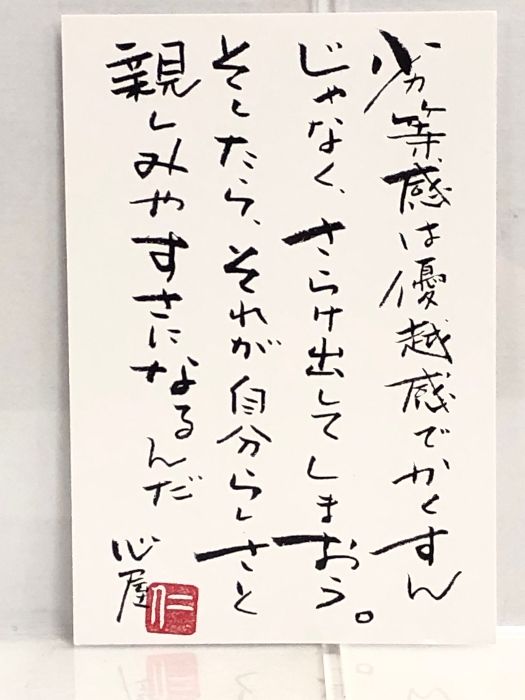 劣等感は優越感でかくすん
じゃなく、さらけ出してしまおう。
そしたら、それが自分らしさと
親しみやすさになるんだ
心屋
仁